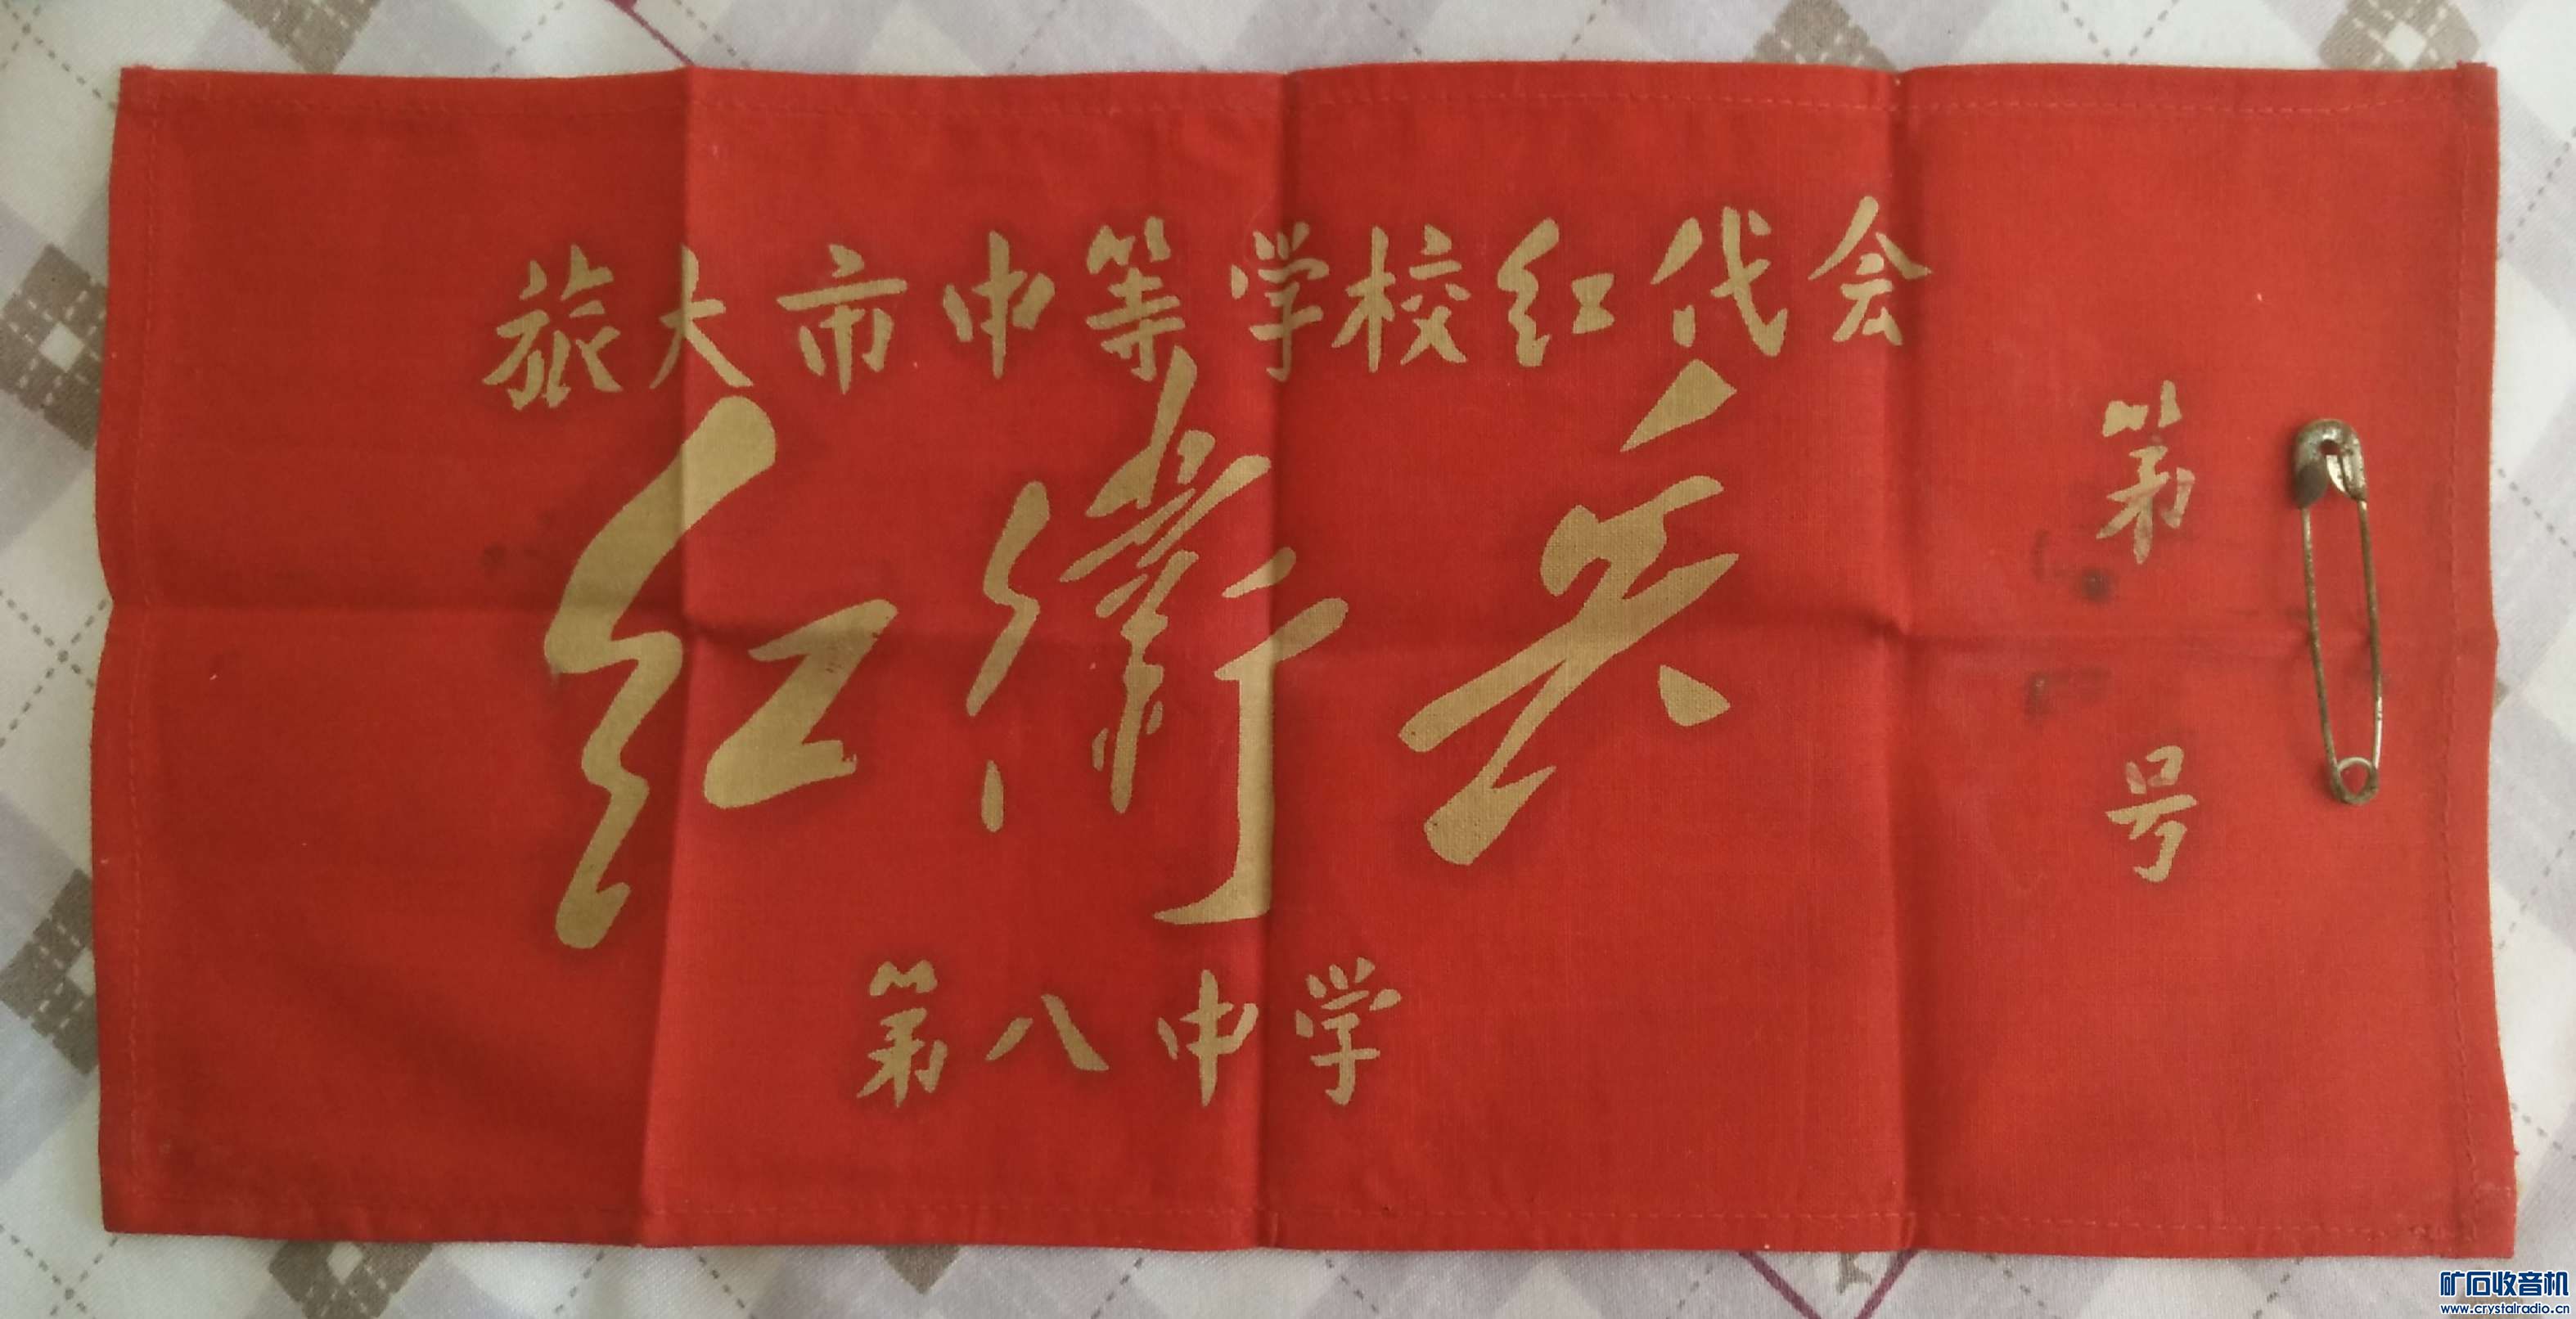 旅大市中等学校红代会
红衛兵
第八中学
第 号
矿石收音机
www.crystalradio.cn